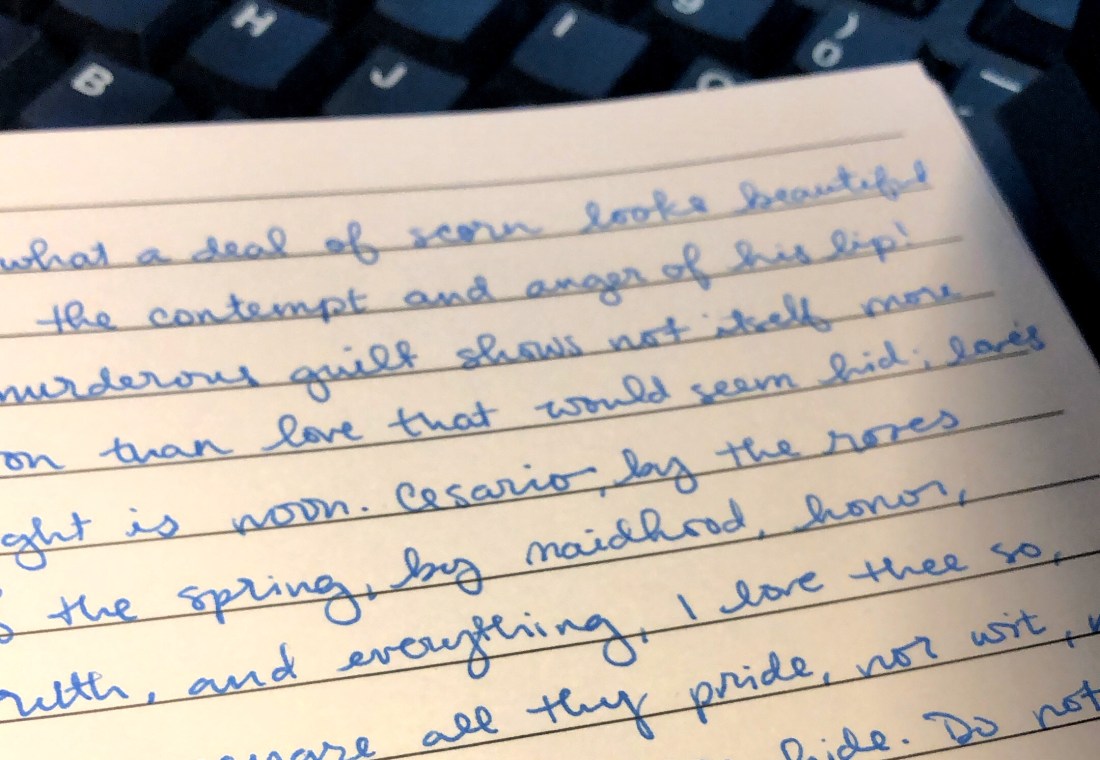 H I 9 )
0
B J
what a deal of scorn looks beautiful
the contempt and anger of his lip!
murderous guilt shows not itself more
on than love that would seem hid; love's
ght is noon. Cesario, by the roses
the spring, by maidhood, honor,
ruth, and everything, I love thee so,
all thy pride, nor wit,
hide. Do not